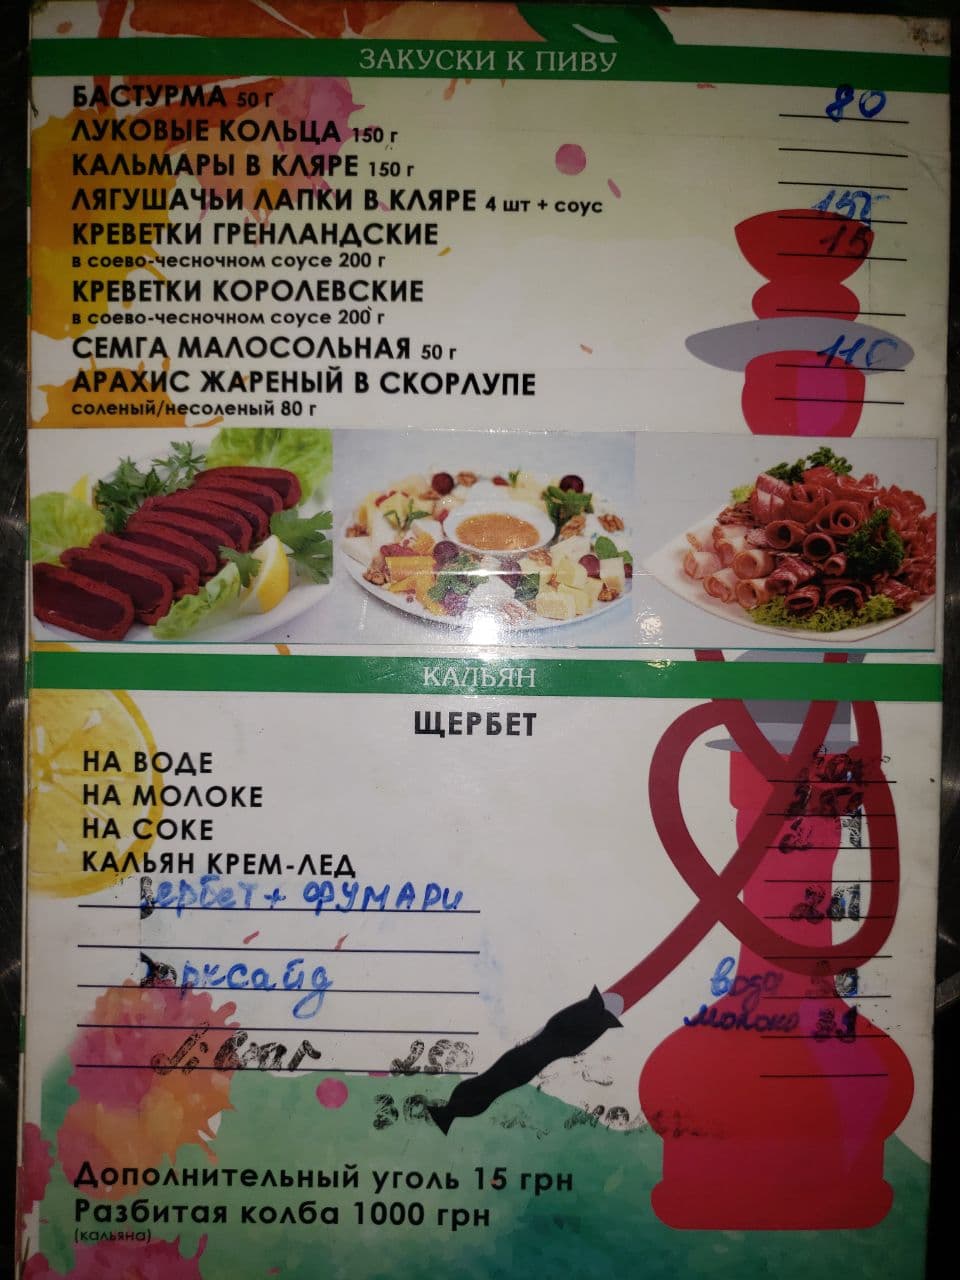 ЗАКУСКИ К ПИВУ
БАСТУРМА 50 г 80
ЛУКОВЫЕ КОЛЬЦА 150 г
КАЛЬМАРЫ В КЛЯРЕ 150 г
ЛЯГУШАЧЬИ ЛАПКИ В КЛЯРЕ 4 шт + соус
КРЕВЕТКИ ГРЕНЛАНДСКИЕ
в соево-чесночном соусе 200 г
КРЕВЕТКИ КОРОЛЕВСКИЕ
в соево-чесночном соусе 200 г
СЕМГА МАЛОСОЛЬНАЯ 50 г 110
АРАХИС ЖАРЕНЫЙ В СКОРЛУПЕ
соленый/несоленый 80 г
КАЛЬЯН
ЩЕРБЕТ
НА ВОДЕ
НА МОЛОКЕ
НА СОКЕ
КАЛЬЯН КРЕМ-ЛЕД
+ ФУМАРИ
вода
молоко
250
Дополнительный уголь 15 грн
Разбитая колба 1000 грн
(кальяна)